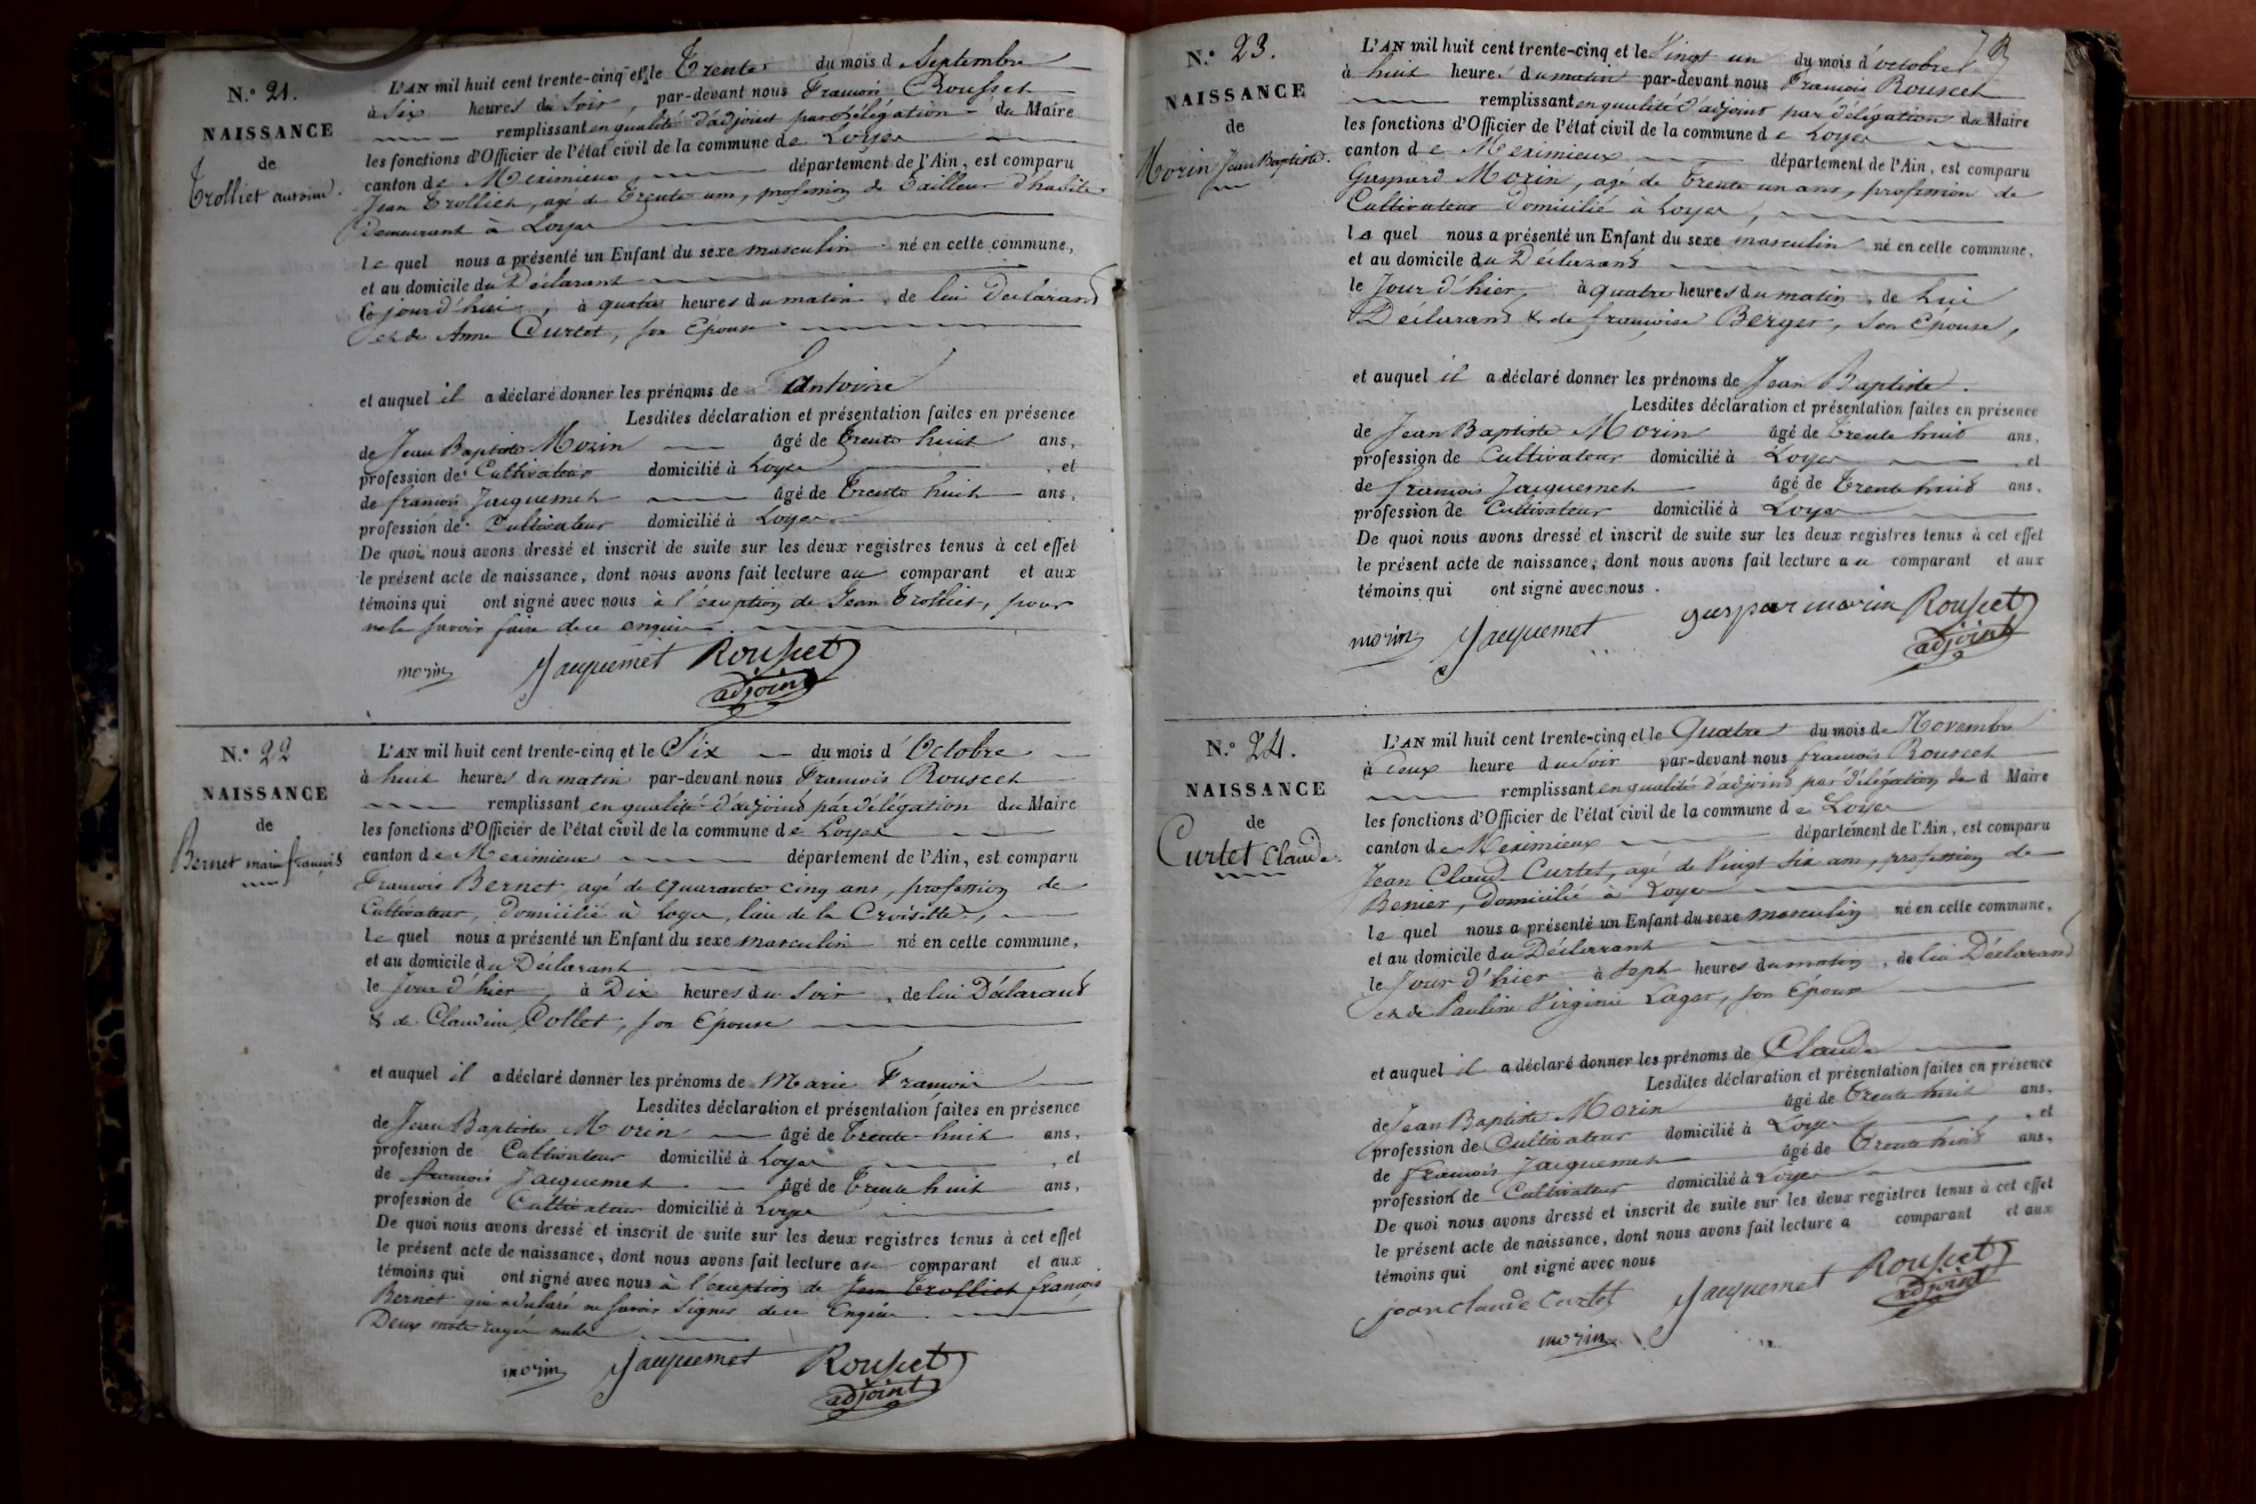 N.° 21.
NAISSANCE
de
Trolliet antoine.
L'AN mil huit cent trente-cinq et le Trente du mois d Septembre
à Six heures du Soir, par-devant nous François Rousset
remplissant en qualité d'adjoint par délégation du Maire
les fonctions d'Officier de l'état civil de la commune de Loyes
canton de Meximieux département de l'Ain, est comparu
Jean Trolliet, agé de Trente ans, profession de Tailleur d'habits
Demeurant à Loyes
le quel nous a présenté un Enfant du sexe masculin né en cette commune,
et au domicile du Déclarant
Ce jour d'hui, à quatre heures du matin, de lui Declarant
et de Anne Curtet, son Epouse
et auquel il a déclaré donner les prénoms de antoine
Lesdites déclaration et présentation faites en présence
de Jean Baptiste Morin âgé de Trente huit ans,
profession de Cultivateur domicilié à Loyes, et
de françois Jacquemet âgé de Trente huit ans,
profession de Cultivateur domicilié à Loyes
De quoi nous avons dressé et inscrit de suite sur les deux registres tenus à cet effet
le présent acte de naissance, dont nous avons fait lecture au comparant et aux
témoins qui ont signé avec nous à l'exception de Jean Trolliet, pour
ne le savoir faire de ce enquis.
morin Jacquemet Rousset
adjoint
N.° 22
NAISSANCE
de
Bernet marie françois
L'AN mil huit cent trente-cinq et le Six du mois d'Octobre
à huit heures du matin par-devant nous François Rousset
remplissant en qualité d'adjoint par délégation du Maire
les fonctions d'Officier de l'état civil de la commune de Loyes
canton de Meximieux département de l'Ain, est comparu
François Bernet agé de quarante cinq ans, profession de
Cultivateur, Domicilié à Loyes, lieu de la Croisette,
le quel nous a présenté un Enfant du sexe masculin né en cette commune,
et au domicile du Déclarant
le jour d'hier, à Dix heures du Soir, de lui Déclarant
& de Claudine Collet, son Epouse
et auquel il a déclaré donner les prénoms de Marie François
Lesdites déclaration et présentation faites en présence
de Jean Baptiste Morin âgé de Trente huit ans,
profession de Cultivateur domicilié à Loyes, et
de françois Jacquemet âgé de Trente huit ans,
profession de Cultivateur domicilié à Loyes
De quoi nous avons dressé et inscrit de suite sur les deux registres tenus à cet effet
le présent acte de naissance, dont nous avons fait lecture au comparant et aux
témoins qui ont signé avec nous à l'exception de Jean Trolliet françois
Bernet qui a déclaré ne savoir signer de ce Enquis.
Deux mots rayés nuls
morin Jacquemet Rousset
adjoint
N.° 23.
NAISSANCE
de
Morin Jean Baptiste.
L'AN mil huit cent trente-cinq et le Vingt un du mois d'octobre
à huit heures du matin par-devant nous François Rousset
remplissant en qualité d'adjoint par délégation du Maire
les fonctions d'Officier de l'état civil de la commune de Loyes
canton de Meximieux département de l'Ain, est comparu
Gaspard Morin, agé de Trente un ans, profession de
Cultivateur domicilié à Loyes,
le quel nous a présenté un Enfant du sexe masculin né en cette commune,
et au domicile du Déclarant
le Jour d'hier, à quatre heures du matin, de lui
Déclarant & de françoise Berger, son Epouse,
et auquel il a déclaré donner les prénoms de Jean Baptiste.
Lesdites déclaration et présentation faites en présence
de Jean Baptiste Morin âgé de Trente huit ans,
profession de Cultivateur domicilié à Loyes, et
de françois Jacquemet âgé de Trente huit ans,
profession de Cultivateur domicilié à Loyes
De quoi nous avons dressé et inscrit de suite sur les deux registres tenus à cet effet
le présent acte de naissance, dont nous avons fait lecture au comparant et aux
témoins qui ont signé avec nous.
morin Jacquemet gaspar morin Rousset
adjoint
N.° 24.
NAISSANCE
de
Curtet Claude.
L'AN mil huit cent trente-cinq et le Quatre du mois de Novembre
à Deux heure du Soir par-devant nous françois Rousset
remplissant en qualité d'adjoint par délégation du d Maire
les fonctions d'Officier de l'état civil de la commune de Loyes
canton de Meximieux département de l'Ain, est comparu
Jean Claud Curtet, agé de Vingt six ans, profession de
, Domicilié à Loyes
le quel nous a présenté un Enfant du sexe masculin né en cette commune,
et au domicile du Déclarant
le Jour d'hier à Sept heures du matin, de lui Déclarant
et de Pauline Virginie Lager, son Epouse
et auquel il a déclaré donner les prénoms de Claude
Lesdites déclaration et présentation faites en présence
de Jean Baptiste Morin âgé de Trente huit ans,
profession de Cultivateur domicilié à Loyes, et
de françois Jacquemet âgé de Trente huit ans,
profession de Cultivateur domicilié à Loyes
De quoi nous avons dressé et inscrit de suite sur les deux registres tenus à cet effet
le présent acte de naissance, dont nous avons fait lecture a comparant et aux
témoins qui ont signé avec nous
jean claude Curtet Jacquemet Rousset
morin adjoint